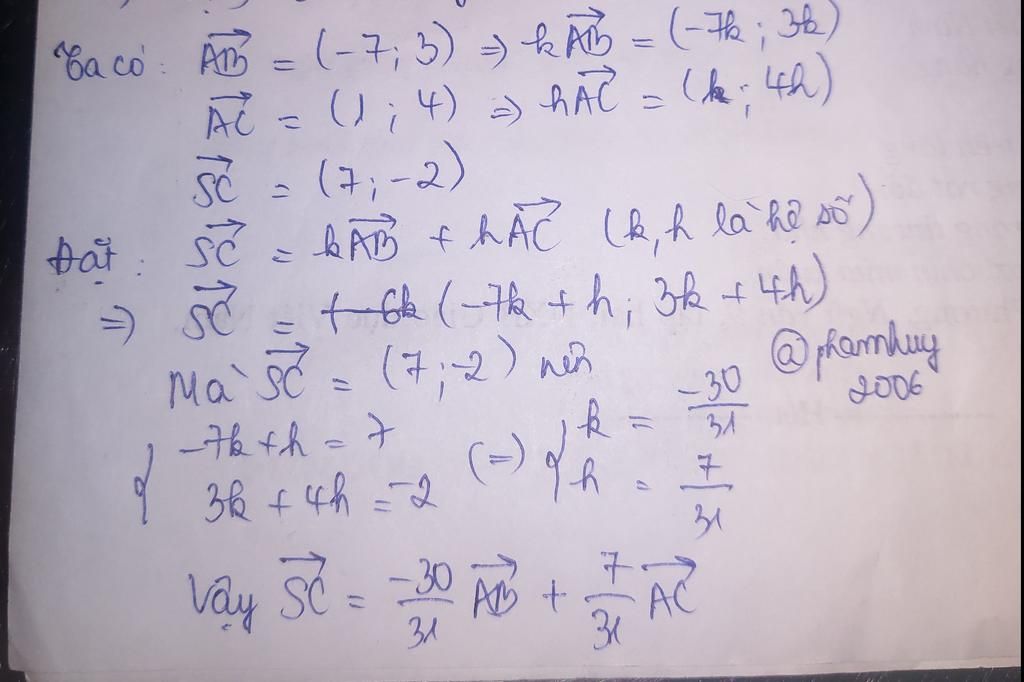 Ta có: AB = (-7; 3) => kAB = (-7k; 3k)
AC = (1; 4) => hAC = (h; 4h)
SC = (7; -2)
Đặt: SC = kAB + hAC (k, h là hệ số)
=> SC = (-7k + h; 3k + 4h)
Mà SC = (7; -2) nên
@phamhuy
2006
{ -7k + h = 7
3k + 4h = -2
(=) { k = -30/31
h = 7/31
Vậy SC = -30/31 AB + 7/31 AC